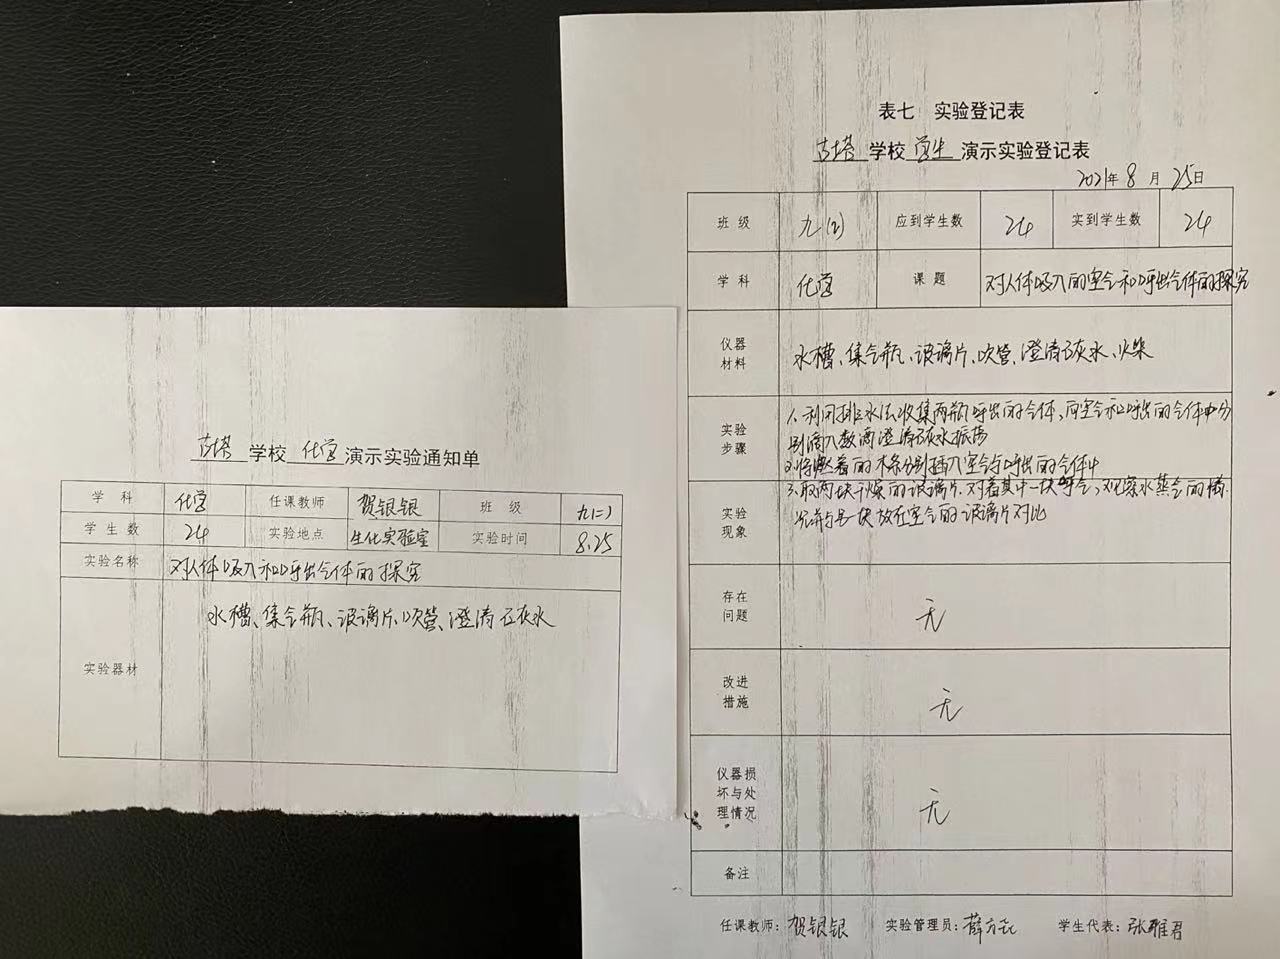 古塔学校化学演示实验通知单
学科 化学 任课教师 贺银银 班级 九(二)
学生数 24 实验地点 生化实验室 实验时间 8.25
实验名称 对人体吸入和呼出气体的探究
实验器材 水槽、集气瓶、玻璃片、吹管、澄清石灰水
表七 实验登记表
古塔学校学生演示实验登记表
2021年8月25日
班级 九(2) 应到学生数 24 实到学生数 24
学科 化学 课题 对人体吸入的空气和呼出气体的探究
仪器材料 水槽、集气瓶、玻璃片、吹管、澄清石灰水、火柴
实验步骤 1.利用排水法收集两瓶呼出的气体,向空气和呼出的气体中分
别滴入数滴澄清石灰水振荡
2.将燃着的木条分别插入空气与呼出的气体中
3.取两块干燥的玻璃片,对着其中一块呼气,观察水蒸气的情
实验现象 况并与另一块放在空气的玻璃片对比
存在问题 无
改进措施 无
仪器损坏与处理情况 无
备注
任课教师:贺银银 实验管理员:薛 学生代表:张雅君